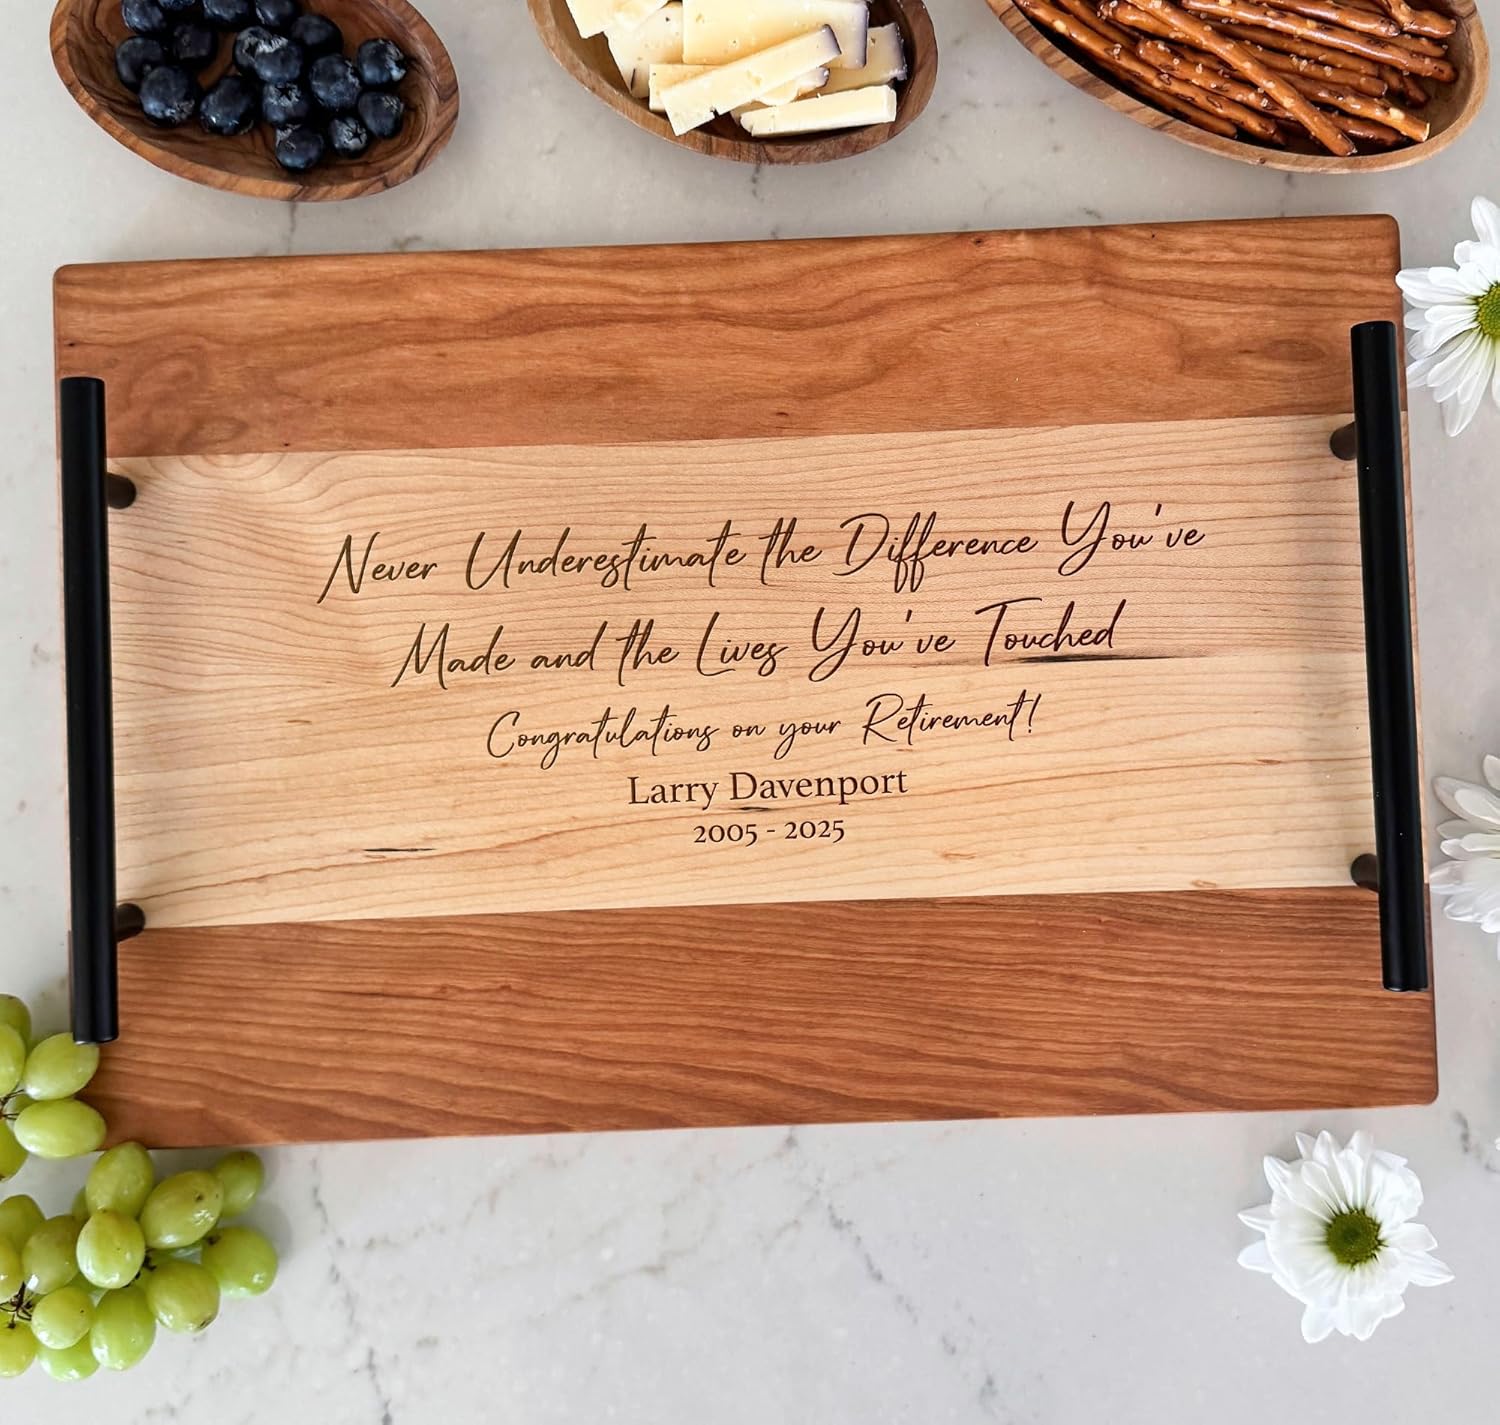 Never Underestimate the Difference You've
Made and the Lives You've Touched
Congratulations on your Retirement!
Larry Davenport
2005 - 2025